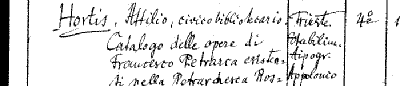 Hortis, Attilio, civico bibliotecario. Trieste. 4º
Catalogo delle opere di Stabilim.
Francesco Petrarca esisten- tipogr.
ti nella Petrarchesca Ros= Appolonio